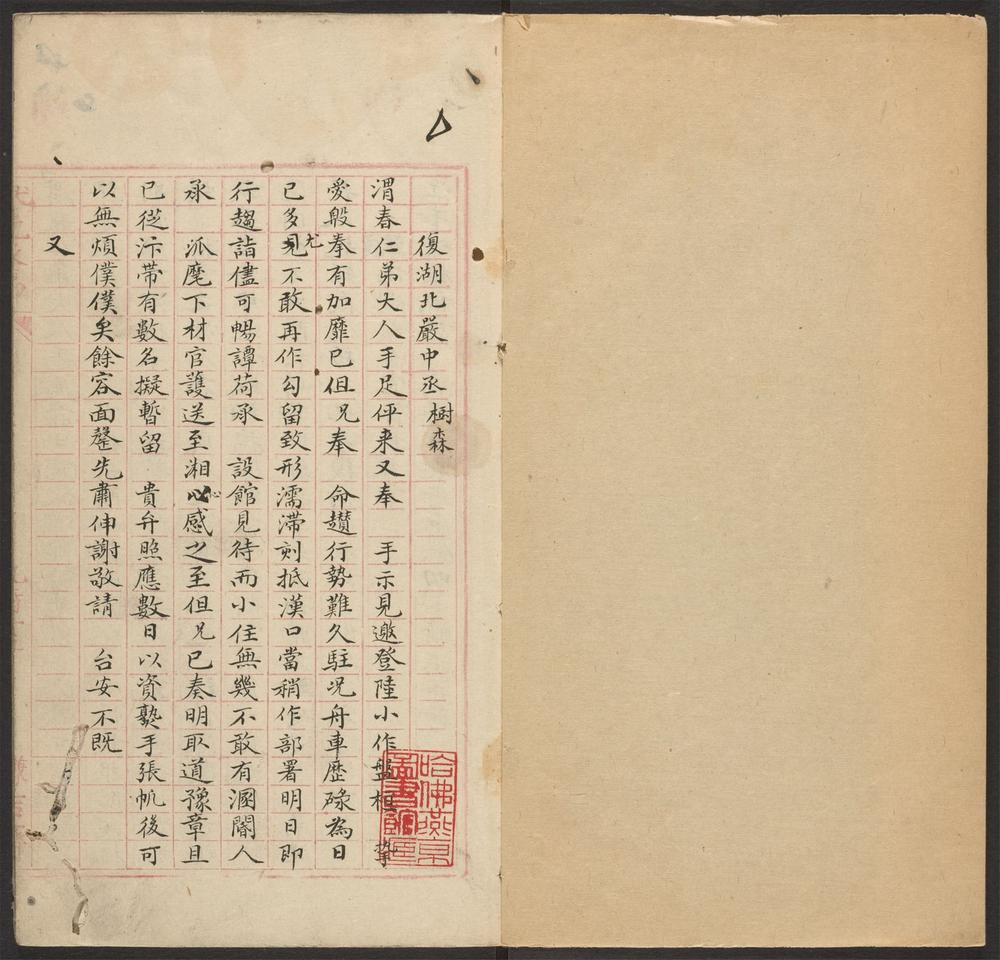 復湖北嚴中丞樹森
渭春仁弟大人手足伻来又奉 手示見邀登陸小作盤桓 摯
愛般拳有加靡已但兄奉 命趲行勢難久駐况舟車歷碌為日
已多尤不敢再作勾留致形濡滯刻抵漢口當稍作部署明日即
行趨詣儘可暢譚荷承 設館見待而小住無幾不敢有溷閽人
承 派麾下材官護送至湘心感之至但兄已奏明取道豫章且
已從汴帶有數名擬暫留 貴弁照應數日以資熟手張帆後可
以無煩僕僕矣餘容面罄先肅伸謝敬請 台安不既
又
哈佛燕京
圖書館